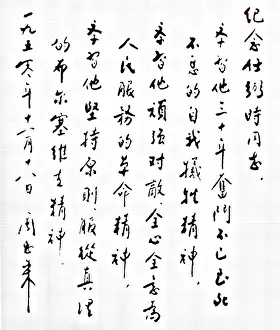 纪念任弼时同志，
学习他三十年奋斗不已至死
不息的自我牺牲精神，
学习他顽强对敌、全心全意为
人民服务的革命精神，
学习他坚持原则服从真理
的布尔塞维克精神。
一九五〇年十一月十八日 周恩来